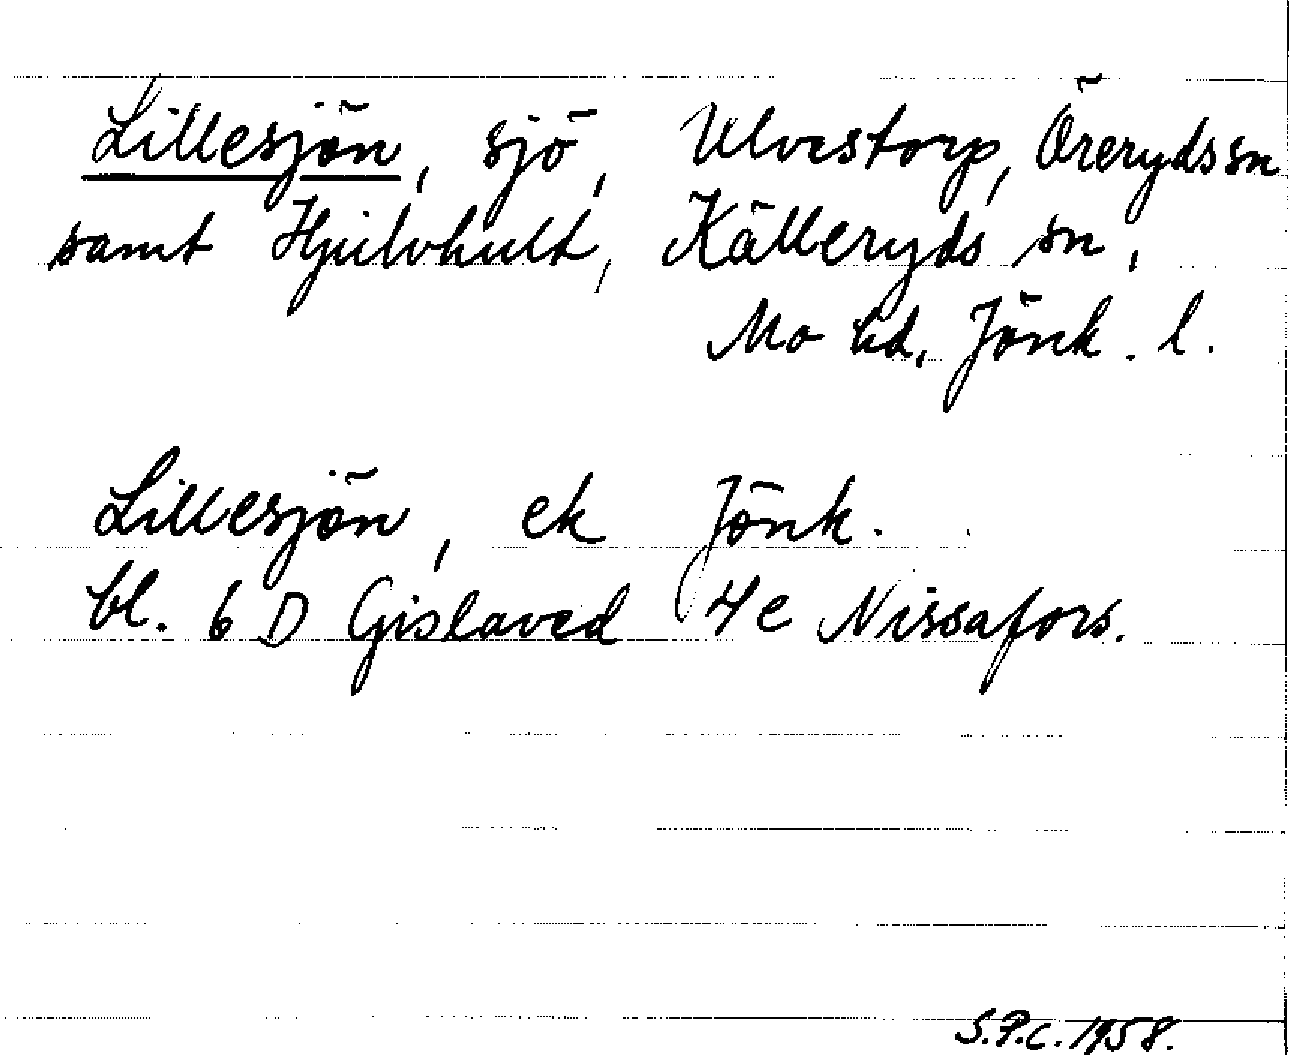 Lillesjön, sjö, Ulvestorp, Öreryds sn
samt Hjulvhult, Källeryds sn,
Mo hd, Jönk. l.
Lillesjön, ek Jönk.
bl. 6 D Gislaved 4e Nissafors.
S.P.C. 1958.